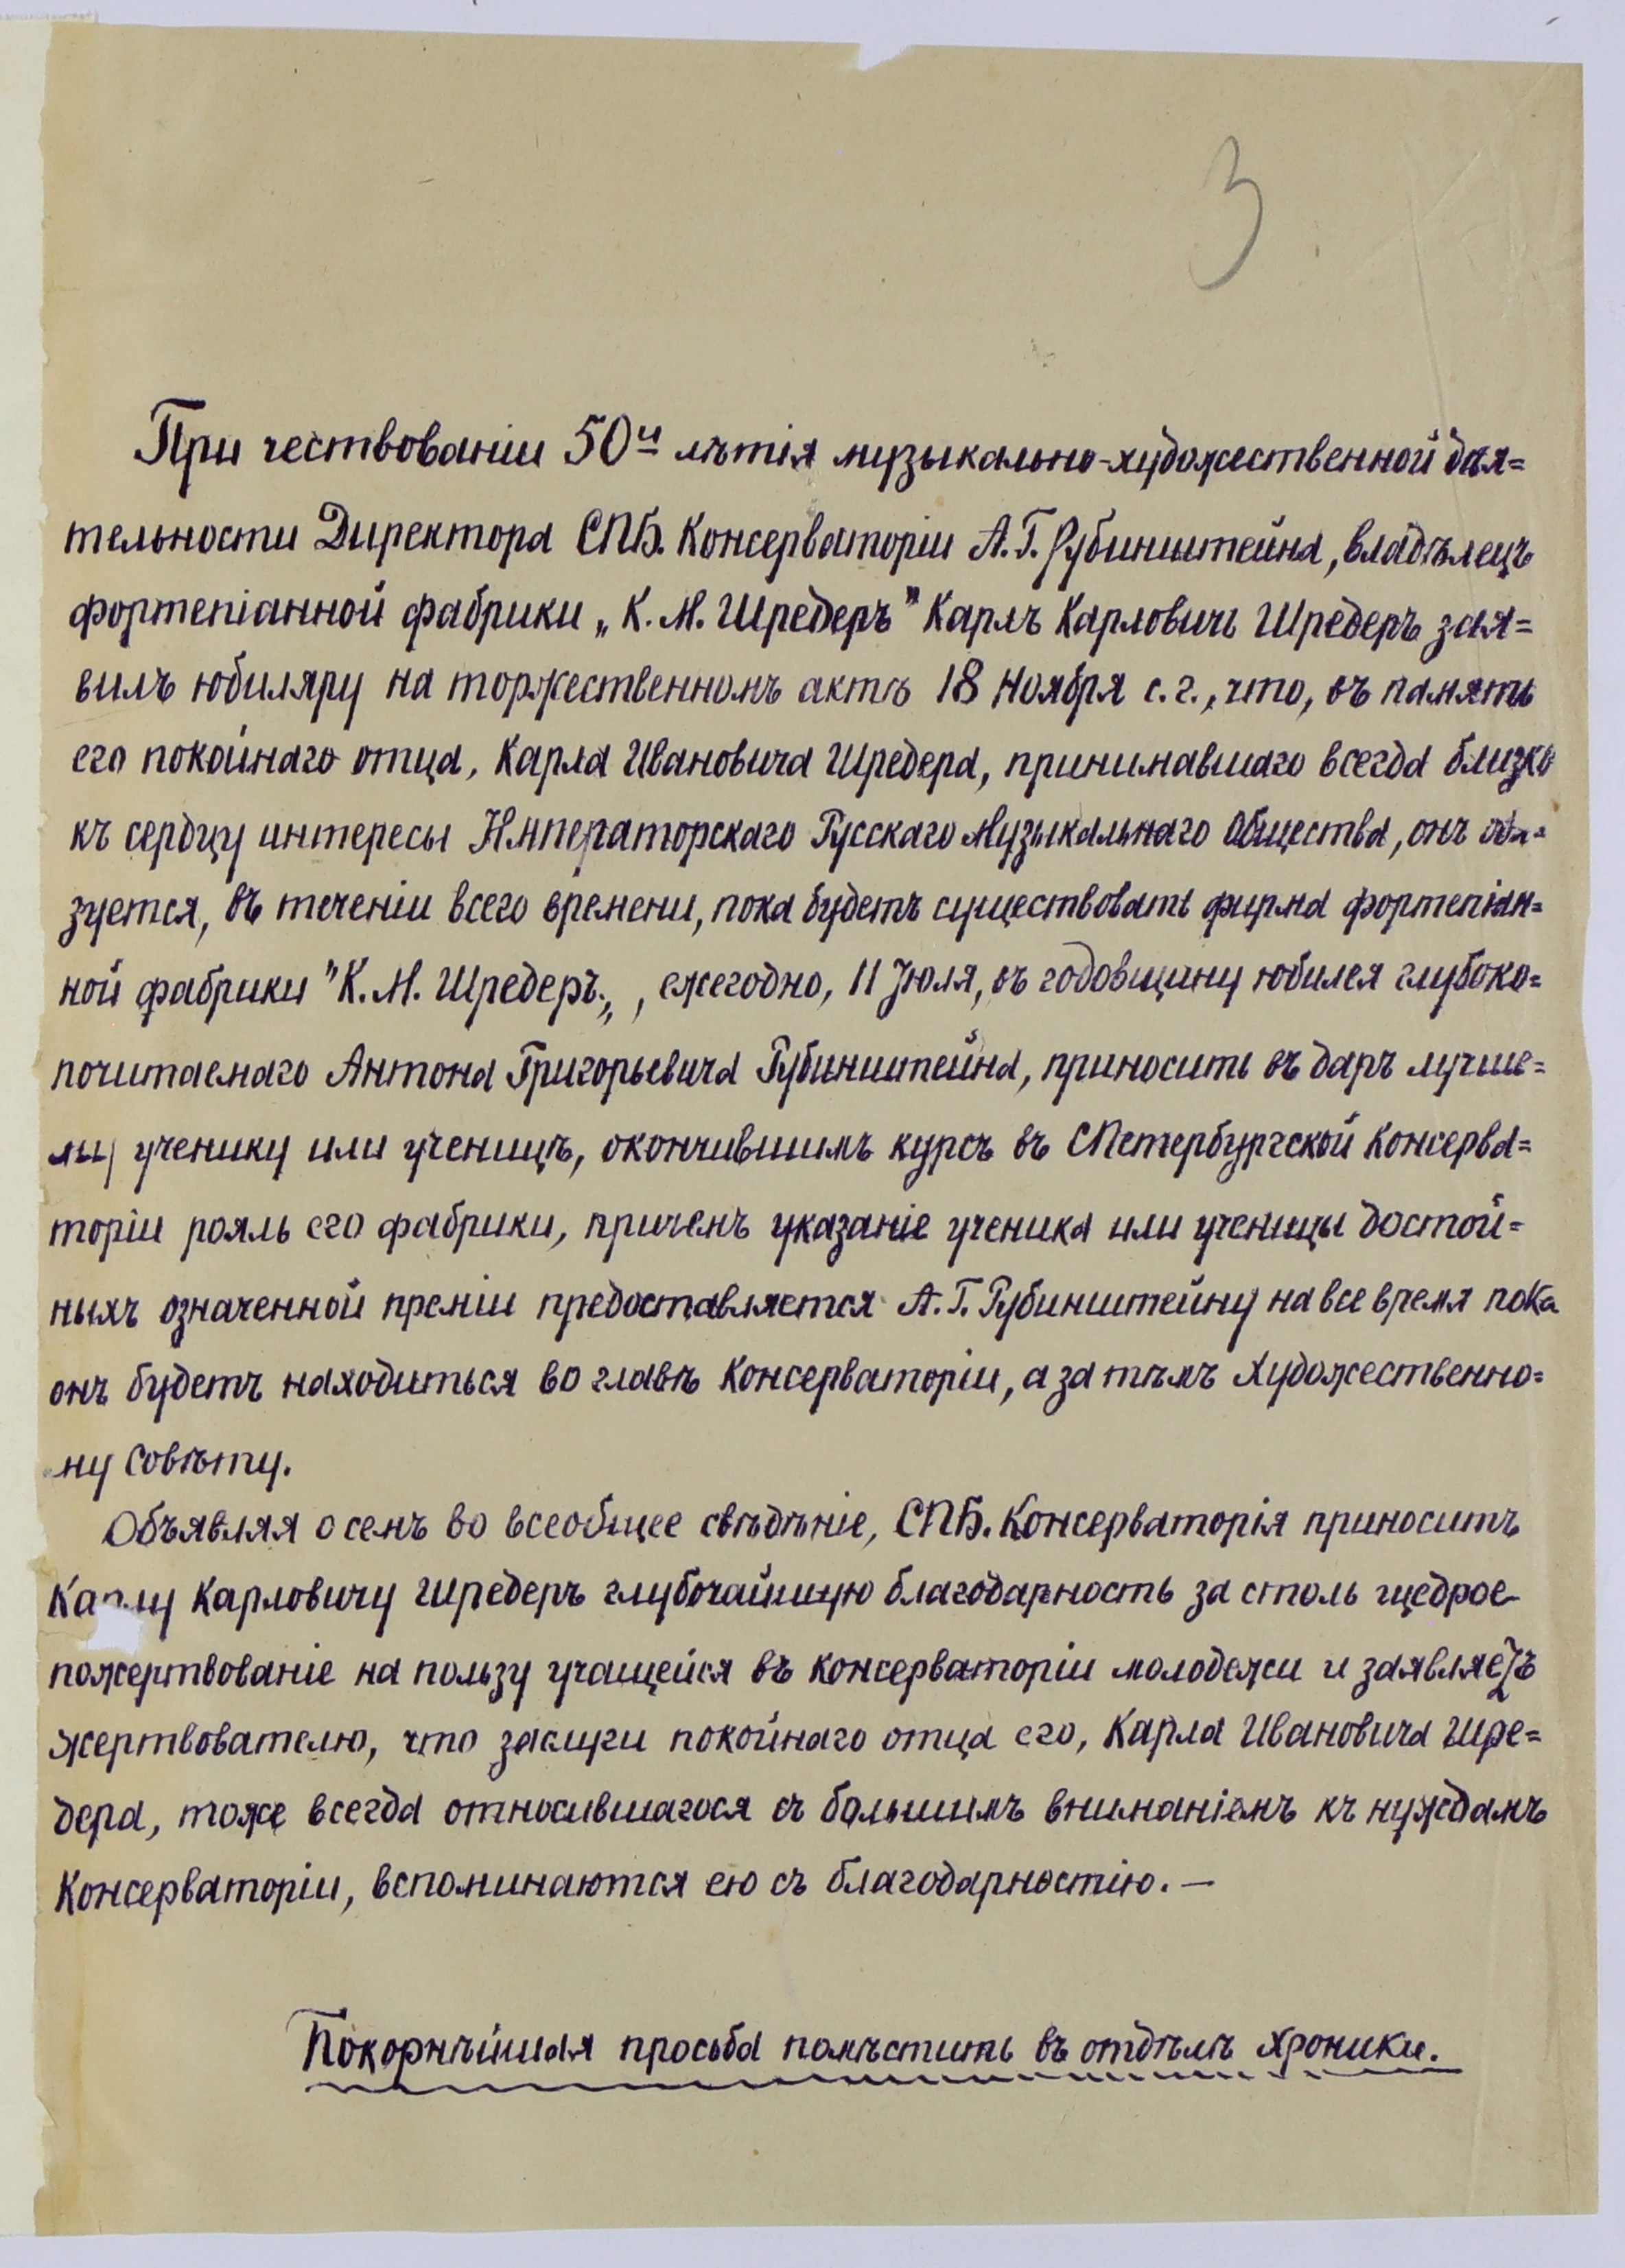 3
При чествованіи 50и лѣтія музыкально-художественной дѣя=
тельности Директора СПБ. Консерваторіи А. Г. Рубинштейна, владѣлецъ
фортепіанной фабрики „К. М. Шредеръ" Карлъ Карловичъ Шредеръ зая=
вилъ юбиляру на торжественномъ актѣ 18 Ноября с. г., что, въ память
его покойнаго отца, Карла Ивановича Шредера, принимавшаго всегда близко
къ сердцу интересы Императорскаго Русскаго Музыкальнаго Общества, онъ обя=
зуется, въ теченіи всего времени, пока будетъ существовать фирма фортепіан=
ной фабрики "К. М. Шредеръ„, ежегодно, 11 Іюля, въ годовщину юбилея глубоко=
почитаемаго Антона Григорьевича Рубинштейна, приносить въ даръ лучше=
му ученику или ученицѣ, окончившимъ курсъ въ СПетербургской Консерва=
торіи рояль его фабрики, причемъ указаніе ученика или ученицы достой=
ныхъ означенной преміи предоставляется А. Г. Рубинштейну на все время пока
онъ будетъ находиться во главѣ Консерваторіи, а за тѣмъ Художественно=
му Совѣту.
Объявляя о семъ во всеобщее свѣдѣніе, СПБ. Консерваторія приноситъ
Карлу Карловичу Шредеръ глубочайшую благодарность за столь щедрое
пожертвованіе на пользу учащейся въ консерваторіи молодежи и заявляетъ
жертвователю, что заслуги покойнаго отца его, Карла Ивановича Шре=
дера, тоже всегда относившагося съ большимъ вниманіемъ къ нуждамъ
Консерваторіи, вспоминаются ею съ благодарностію. —
Покорнѣйшая просьба помѣстить въ отдѣлѣ хроники.